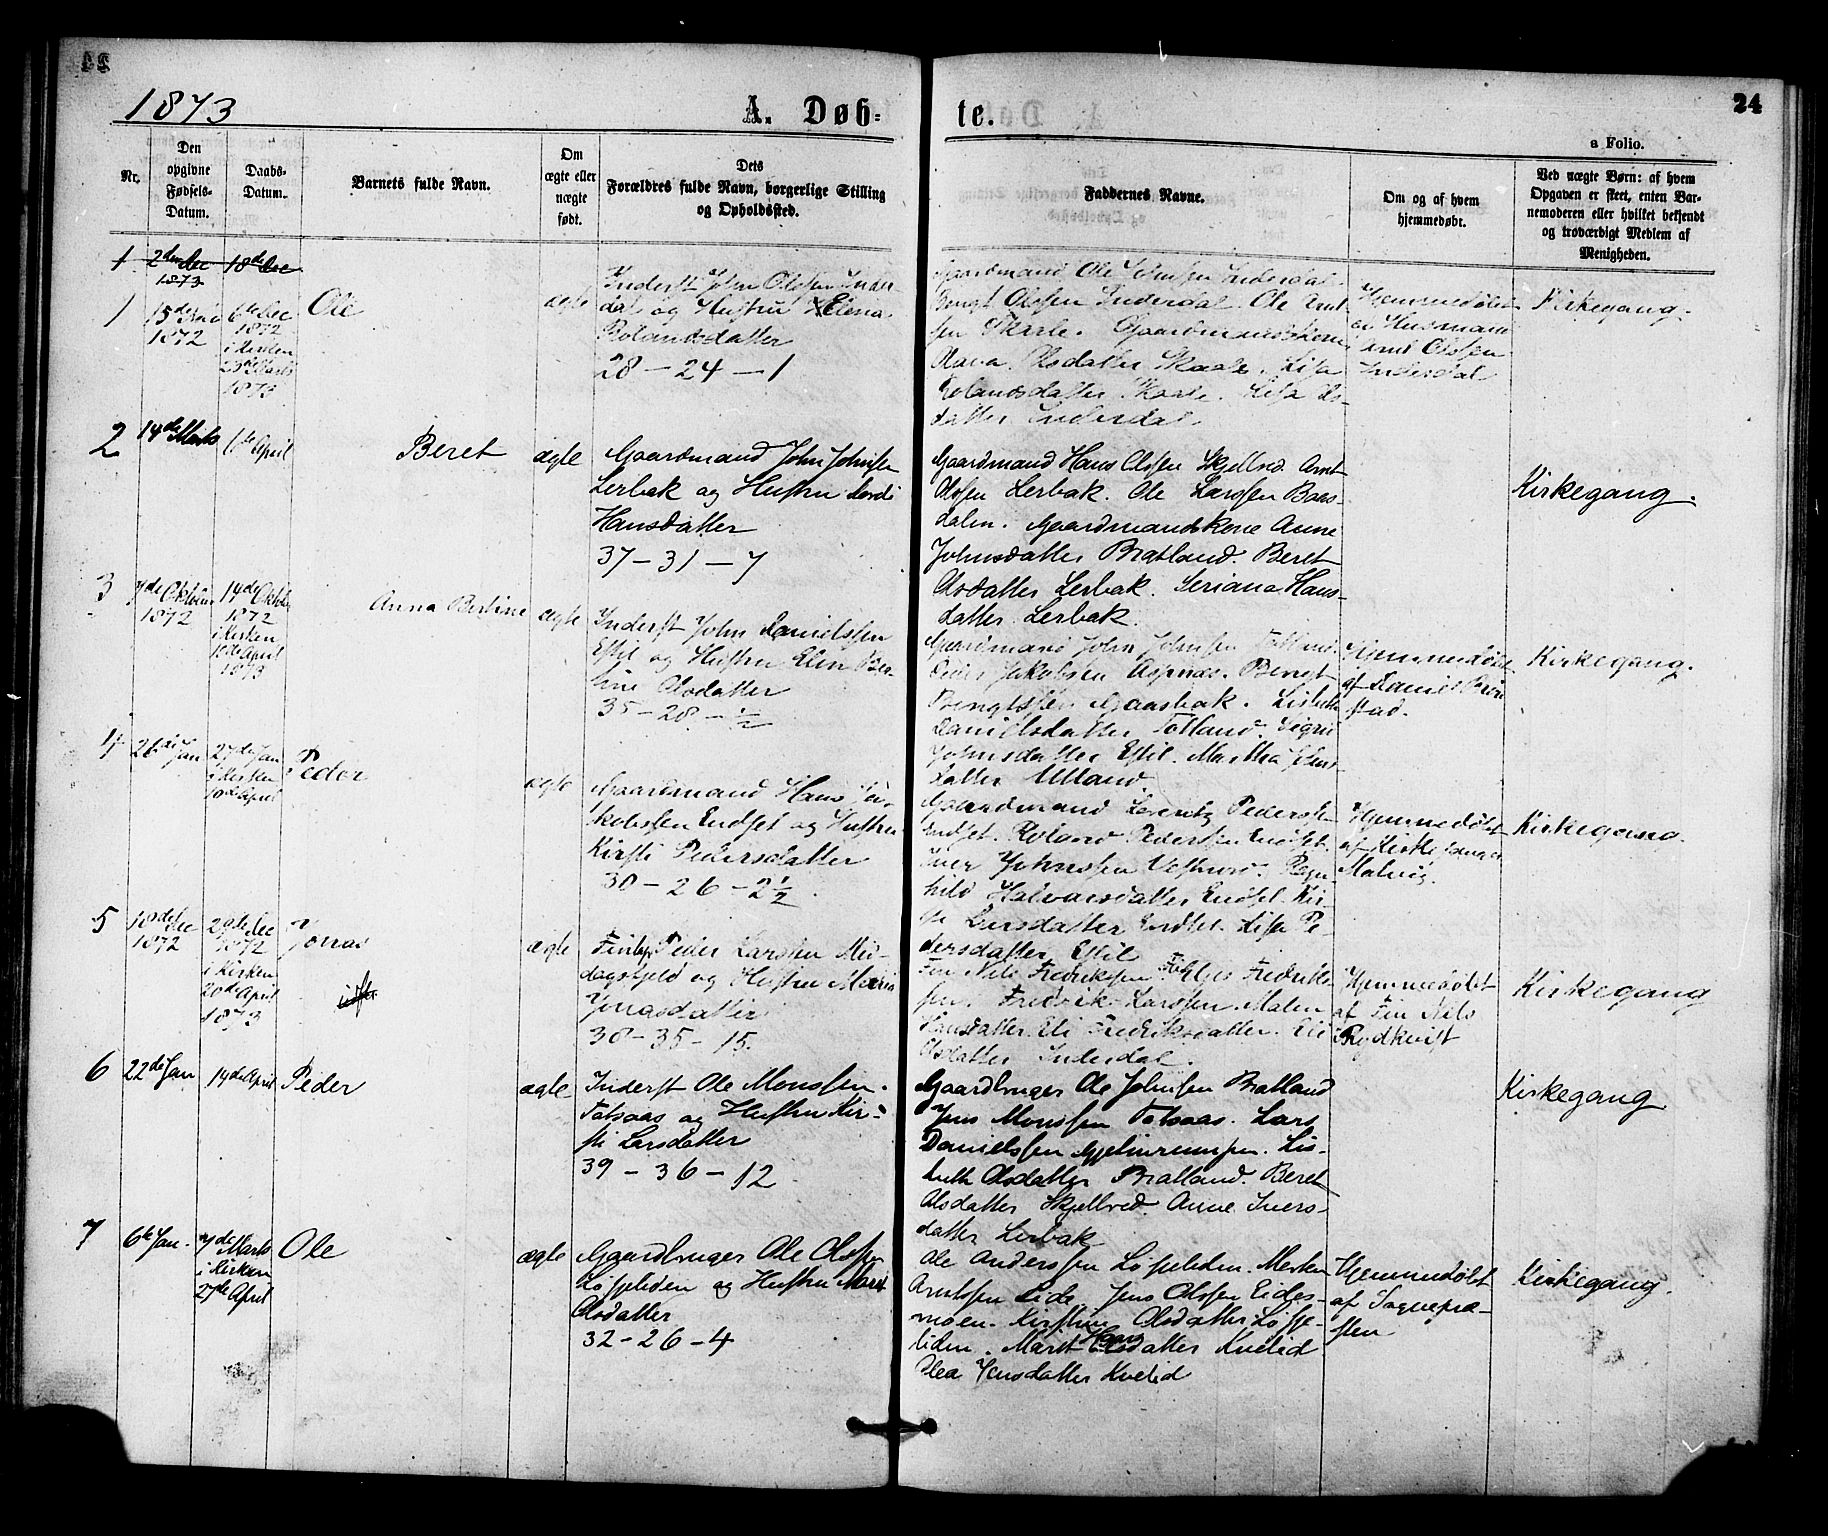 1873
A. Døb-
te.
24
a Folio.
Nr.
Den
opgivne
Fødsels-
Datum.
Daabs-
Datum.
Barnets fulde Navn.
Om
ægte eller
nægte
født.
Dets
Forældres fulde Navn, borgerlige Stilling
og Opholdssted.
Faddernes Navne.
Om og af hvem
hjemmedøbt.
Ved nægte Børn: af hvem
Opgaven er skeet, enten Bar-
nemoderen eller hvilket bekjendt
og troværdigt Medlem af
Menigheden.
1 2den Dec 18de Dec
1873
1
15de
1872
6te Dec
1872
i Kirken
23de Marts
1873
Ole
ægte
Inderst John Olssen Inder-
dal og Hustru Elena
Rolandsdatter
28 - 24 - 1
Gaardmand Ole Johnsen Inderdal.
Bengt Olssen Inderdal. Ole Arnt-
sen Skarle. Gaardmandskone
Olsdatter Skaale. Lisa
Rolandsdatter Skaale. Lisa Ols-
datter Inderdal.
Hjemmedøbt
af Husmand
Arnt Olssen
Inderdal
Kirkegang.
2
14de Marts
6te April
Beret
ægte
Gaardmand John Johnsen
Lerbak og Hustru
Hansdatter
37 - 31 - 7
Gaardmand Hans Olssen Skjelbred. Arnt
Olssen Lerbak. Ole Larssen Baas-
dalen. Gaardmandskone Anne
Johnsdatter Bratland. Beret
Olsdatter Lerbak. Seriana Hans-
datter Lerbak.
Kirkegang.
3
7de Oktober
1872
14de Oktob
1872
i Kirken
10de April
1873
Anna Berline
ægte
Inderst John Danielssen
Estil og Hustru Elen Ber-
line Olsdatter
35 - 28 - ½
Gaardmand John Johnsen Totland.
Peder Jakobsen Aspnæs. Bengt
Bengtssen Gaasbak. Lisbeth
Danielsdatter Totland. Sigrid
Johnsdatter Estil. Martha Johns-
datter Ulland.
Hjemmedøbt
af Daniel
stad.
Kirkegang.
4
26de Jan
27de Jan
i Kirken
10de April
Peder
ægte
Gaardmand Hans Ja-
kobssen Endset og Hustru
Kirsti Pedersdatter
30 - 26 - 2½
Gaardmand Lorentz Pederssen
Endset. Roland Pederssen Endset.
Iver Johnssen Vestmo. Ragn-
hild Halvarsdatter Endset. Kir-
sti Larsdatter Endset. Lisa Pe-
dersdatter Estil
Hjemmedøbt
af Kirkesanger
Malvig.
Kirkegang.
5
18de Dec
1872
29de Dec
1872
i Kirken
20de April
1873
Jonas
ægte
Finlap Peder Larssen Mid-
dagsfjeld og Hustru Maria
Jonasdatter
38 - 35 - 15.
Fin Nils Fredriksen. Fredriks-
sen. Fredrik Larssen. Malen
Hansdatter. Eli Fredriksdatter. Eli
Olsdatter Inderdal.
Hjemmedøbt
af Fin Nils
Rydkvist
Kirkegang
6
22de Jan
14de April
Peder
ægte
Inderst Ole Monssen
Totsaas og Hustru Kir-
sti Larsdatter
39 - 36 - 12
Gaardbruger Ole Johnsen Bratland
Jens Monssen Totsaas. Lars
Danielssen Gjelinrumpen. Lis-
beth Olsdatter Bratland. Beret
Olsdatter Skjelbred. Anne Ivers-
datter Lerbak
Kirkegang
7
6te Jan.
7de Marts
i Kirken
27de April
Ole
ægte
Gaardbruger Ole Olssen
Løfseliden og Hustru Marit
Olsdatter
32 - 26 - 4
Ole Anderssen Løfseliden. Morten
Arntssen Lide. Jens Olssen Eides-
moen. Kirstine Olsdatter Løfse-
liden. Marit Hansdatter Kvelid
Olea Jensdatter Kvelid
Hjemmedøbt
af Sognepræ-
sten
Kirkegang.